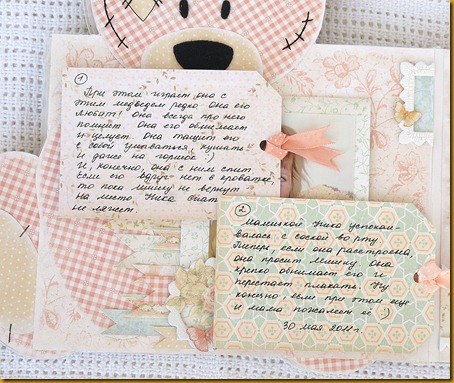 1
При этом играет она с
этим медведем редко. Она его
любит! Она всегда про него
помнит. Она его обнимает
и целует. Она тащит его
с собой умываться, кушать
и даже на горшок :)
И, конечно, она с ним спит.
Если его вдруг нет в кроватке,
то пока мишку не вернут
на место, Ника спать
не ляжет.
2
Маленькой Ника успокаи-
валась с соской во рту.
Теперь, если она расстроена,
она просит мишку. Она
крепко обнимает его и
перестает плакать. Ну
конечно, если при этом еще
и мама пожалеет её :)
30 мая 2011г.